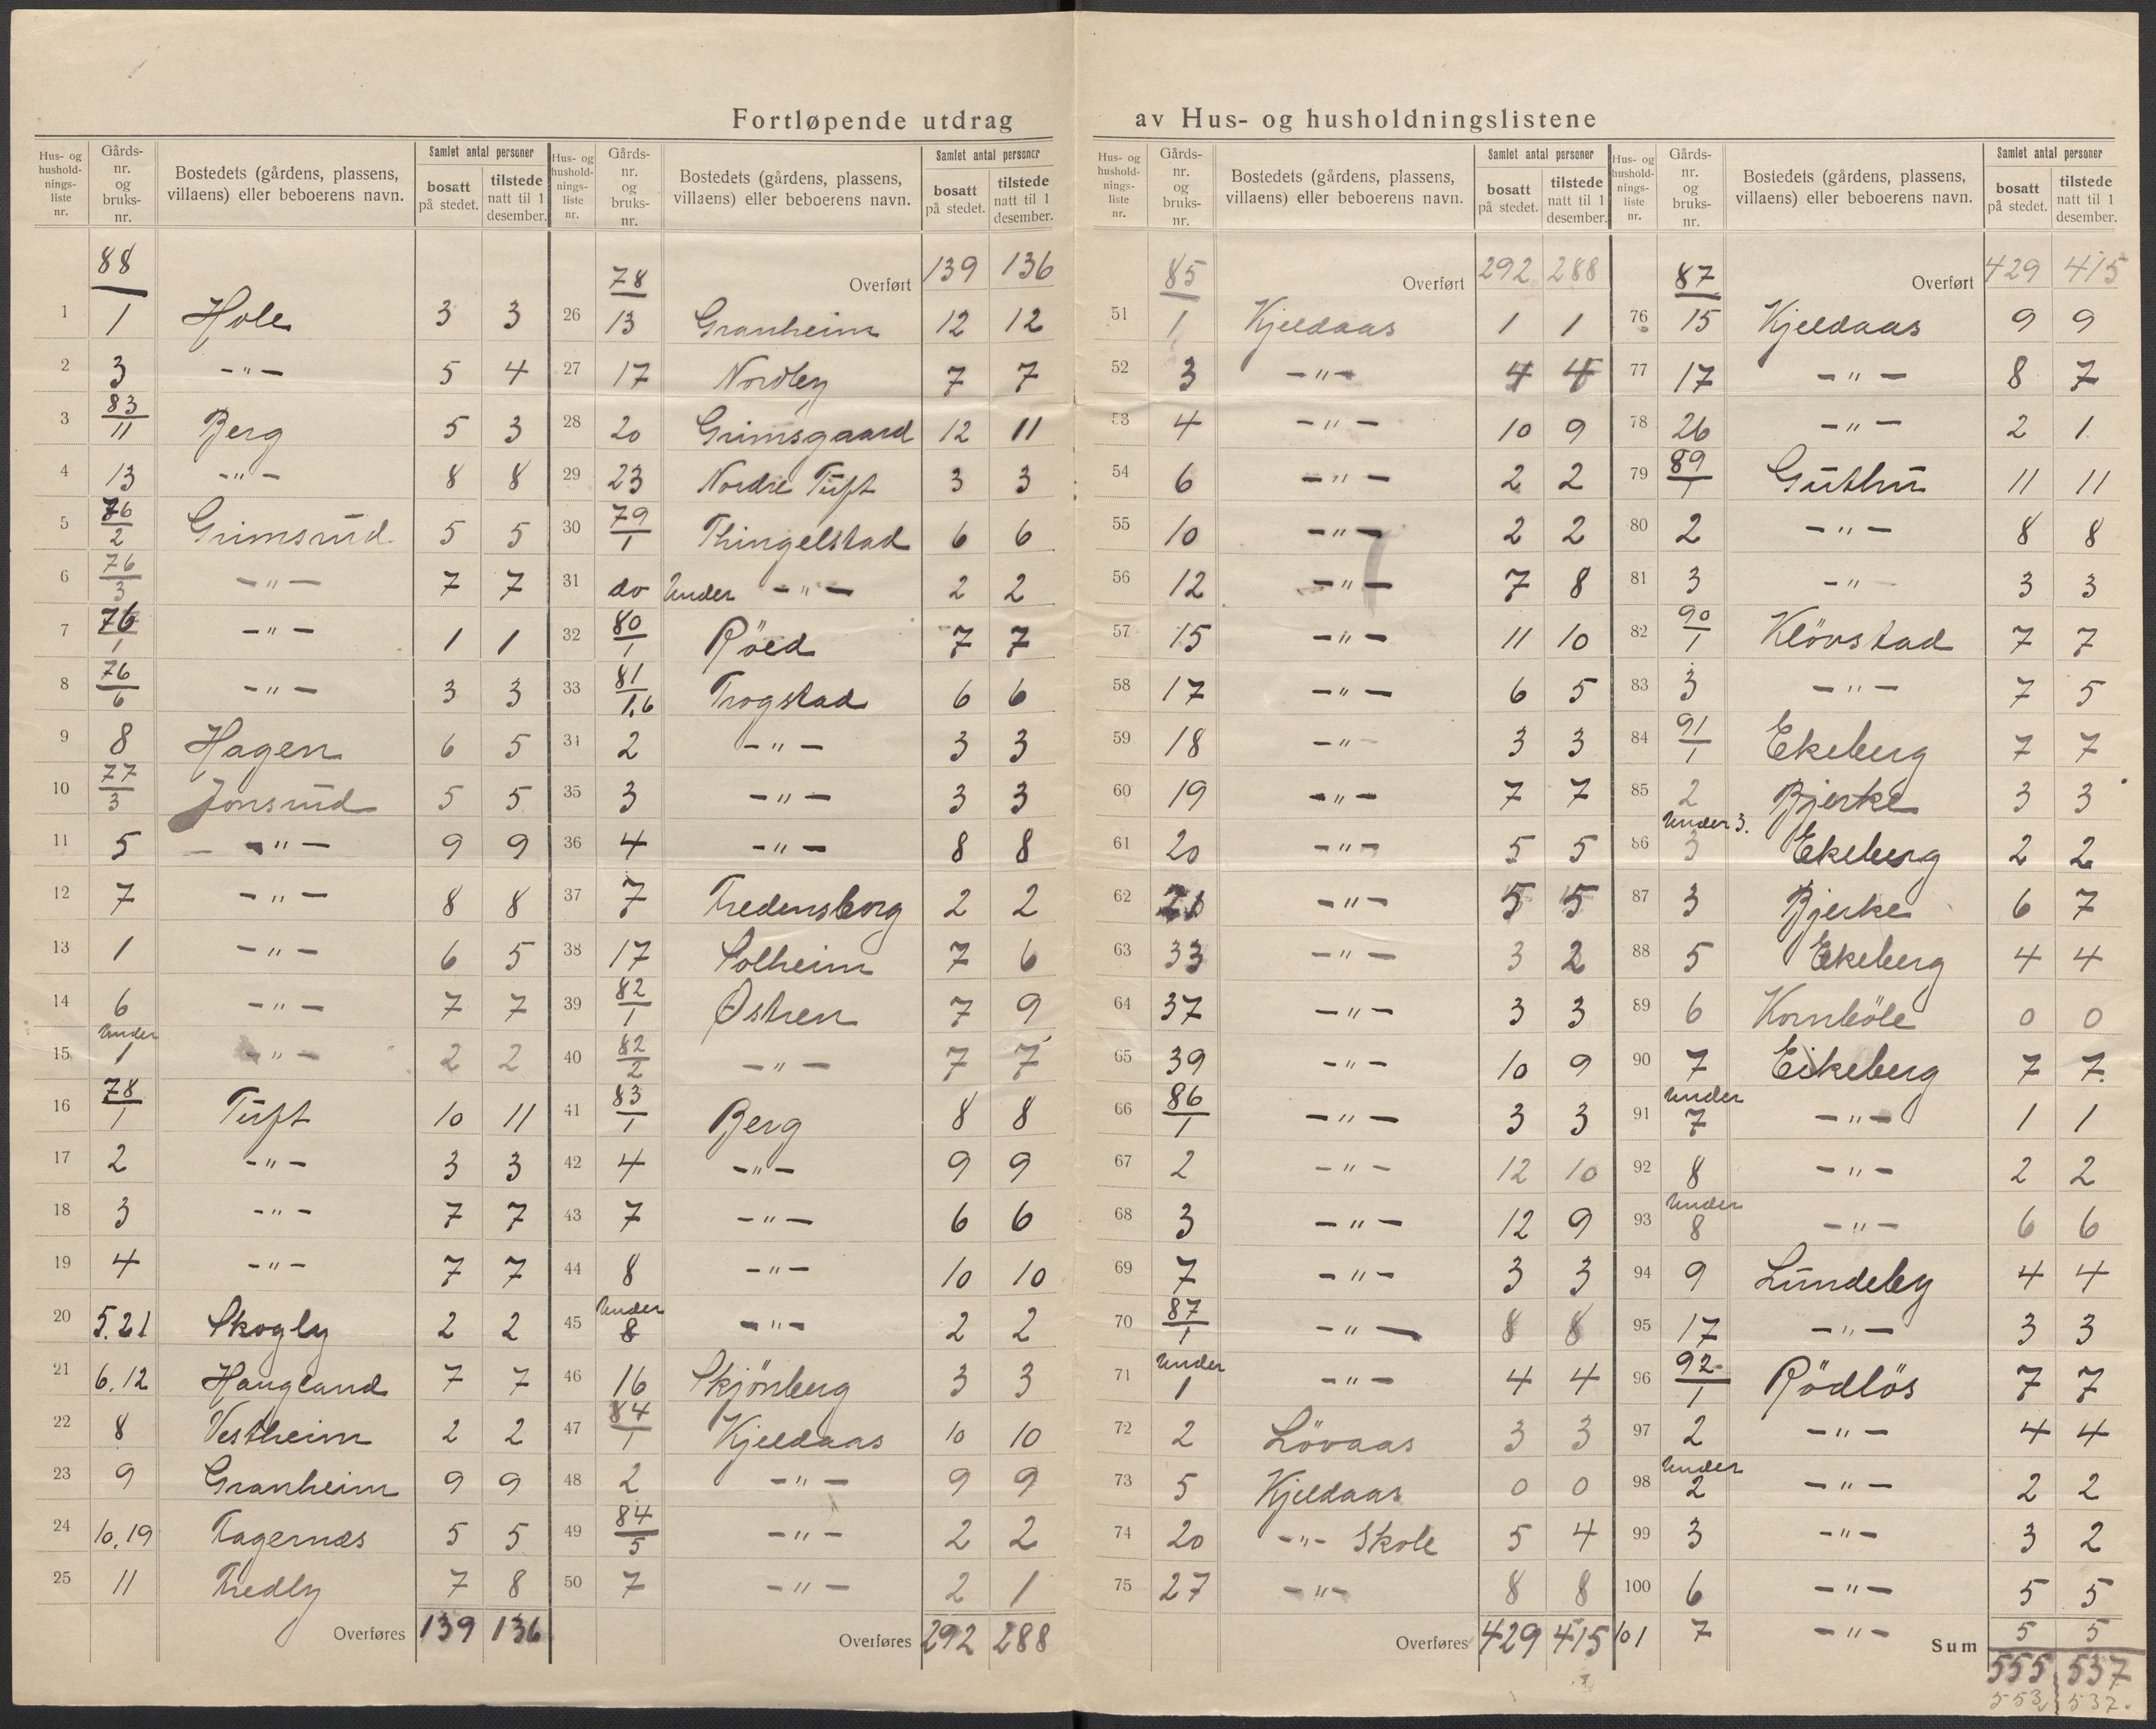 Fortløpende utdrag av Hus- og husholdningslistene
Hus- og hushold-nings-liste nr. | Gårds-nr. og bruks-nr. | Bostedets (gårdens, plassens, villaens) eller beboerens navn. | Samlet antal personer bosatt på stedet. | tilstede natt til 1 desember.
88
1 | 1 | Hole | 3 | 3
2 | 3 | -"- | 5 | 4
3 | 83/11 | Berg | 5 | 3
4 | 13 | -"- | 8 | 8
5 | 76/2 | Grimsrud | 5 | 5
6 | 76/3 | -"- | 7 | 7
7 | 76/1 | -"- | 1 | 1
8 | 76/6 | -"- | 3 | 3
9 | 8 | Hagen | 6 | 5
10 | 77/3 | Jonsrud | 5 | 5
11 | 5 | -"- | 9 | 9
12 | 7 | -"- | 8 | 8
13 | 1 | -"- | 6 | 5
14 | 6 | -"- | 7 | 7
15 | under 1 | -"- | 2 | 2
16 | 78/1 | Tuft | 10 | 11
17 | 2 | -"- | 3 | 3
18 | 3 | -"- | 7 | 7
19 | 4 | -"- | 7 | 7
20 | 5.21 | Skogly | 2 | 2
21 | 6.12 | Haugland | 7 | 7
22 | 8 | Vestheim | 2 | 2
23 | 9 | Granheim | 9 | 9
24 | 10.19 | Fagernes | 5 | 5
25 | 11 | Fredly | 7 | 8
Overføres 139 136
Hus- og hushold-nings-liste nr. | Gårds-nr. og bruks-nr. | Bostedets (gårdens, plassens, villaens) eller beboerens navn. | Samlet antal personer bosatt på stedet. | tilstede natt til 1 desember.
78 | Overført 139 136
26 | 13 | Granheim | 12 | 12
27 | 17 | Nordby | 7 | 7
28 | 20 | Grimsgaard | 12 | 11
29 | 23 | Nordre Tuft | 3 | 3
30 | 79/1 | Thingelstad | 6 | 6
31 | do | Under -"- | 2 | 2
32 | 80/1 | Röed | 7 | 7
33 | 81/1,6 | Trogstad | 6 | 6
34 | 2 | -"- | 3 | 3
35 | 3 | -"- | 3 | 3
36 | 4 | -"- | 8 | 8
37 | 7 | Fredensborg | 2 | 2
38 | 17 | Solheim | 7 | 6
39 | 82/1 | Østren | 7 | 9
40 | 82/2 | -"- | 7 | 7
41 | 83/1 | Berg | 8 | 8
42 | 4 | -"- | 9 | 9
43 | 7 | -"- | 6 | 6
44 | 8 | -"- | 10 | 10
45 | under 8 | -"- | 2 | 2
46 | 16 | Skjönberg | 3 | 3
47 | 84/1 | Kjeldaas | 10 | 10
48 | 2 | -"- | 9 | 9
49 | 84/5 | -"- | 2 | 2
50 | 7 | -"- | 2 | 1
Overføres 292 288
Hus- og hushold-nings-liste nr. | Gårds-nr. og bruks-nr. | Bostedets (gårdens, plassens, villaens) eller beboerens navn. | Samlet antal personer bosatt på stedet. | tilstede natt til 1 desember.
85 | Overført 292 288
51 | 1 | Kjeldaas | 1 | 1
52 | 3 | -"- | 4 | 4
53 | 4 | -"- | 10 | 9
54 | 6 | -"- | 2 | 2
55 | 10 | -"- | 2 | 2
56 | 12 | -"- | 7 | 8
57 | 15 | -"- | 11 | 10
58 | 17 | -"- | 6 | 5
59 | 18 | -"- | 3 | 3
60 | 19 | -"- | 7 | 7
61 | 20 | -"- | 5 | 5
62 | -"- | 5 | 5
63 | 33 | -"- | 3 | 2
64 | 37 | -"- | 3 | 3
65 | 39 | -"- | 10 | 9
66 | 86/1 | -"- | 3 | 3
67 | 2 | -"- | 12 | 10
68 | 3 | -"- | 12 | 9
69 | 7 | -"- | 3 | 3
70 | 87/1 | -"- | 8 | 8
71 | under 1 | -"- | 4 | 4
72 | 2 | Lövaas | 3 | 3
73 | 5 | Kjeldaas | 0 | 0
74 | 20 | -"- Skole | 5 | 4
75 | 27 | -"- | 8 | 8
Overføres 429 415
Hus- og hushold-nings-liste nr. | Gårds-nr. og bruks-nr. | Bostedets (gårdens, plassens, villaens) eller beboerens navn. | Samlet antal personer bosatt på stedet. | tilstede natt til 1 desember.
87 | Overført 429 415
76 | 15 | Kjeldaas | 9 | 9
77 | 17 | -"- | 8 | 7
78 | 26 | -"- | 2 | 1
79 | 89/1 | Guthu | 11 | 11
80 | 2 | -"- | 8 | 8
81 | 3 | -"- | 3 | 3
82 | 90/1 | Klövstad | 7 | 7
83 | 3 | -"- | 7 | 5
84 | 91/1 | Ekeberg | 7 | 7
85 | 2 | Bjerke | 3 | 3
86 | under 3. 3 | Ekeberg | 2 | 2
87 | 3 | Bjerke | 6 | 7
88 | 5 | Ekeberg | 4 | 4
89 | 6 | Kornböle | 0 | 0
90 | 7 | Eikeberg | 7 | 7
91 | under 7 | -"- | 1 | 1
92 | 8 | -"- | 2 | 2
93 | under 8 | -"- | 6 | 6
94 | 9 | Lundeby | 4 | 4
95 | 17 | -"- | 3 | 3
96 | 92/1 | Rödlös | 7 | 7
97 | 2 | -"- | 4 | 4
98 | under 2 | -"- | 2 | 2
99 | 3 | -"- | 3 | 2
100 | 6 | -"- | 5 | 5
101 | 7 | -"- | 5 | 5
Sum 555 537
553 537